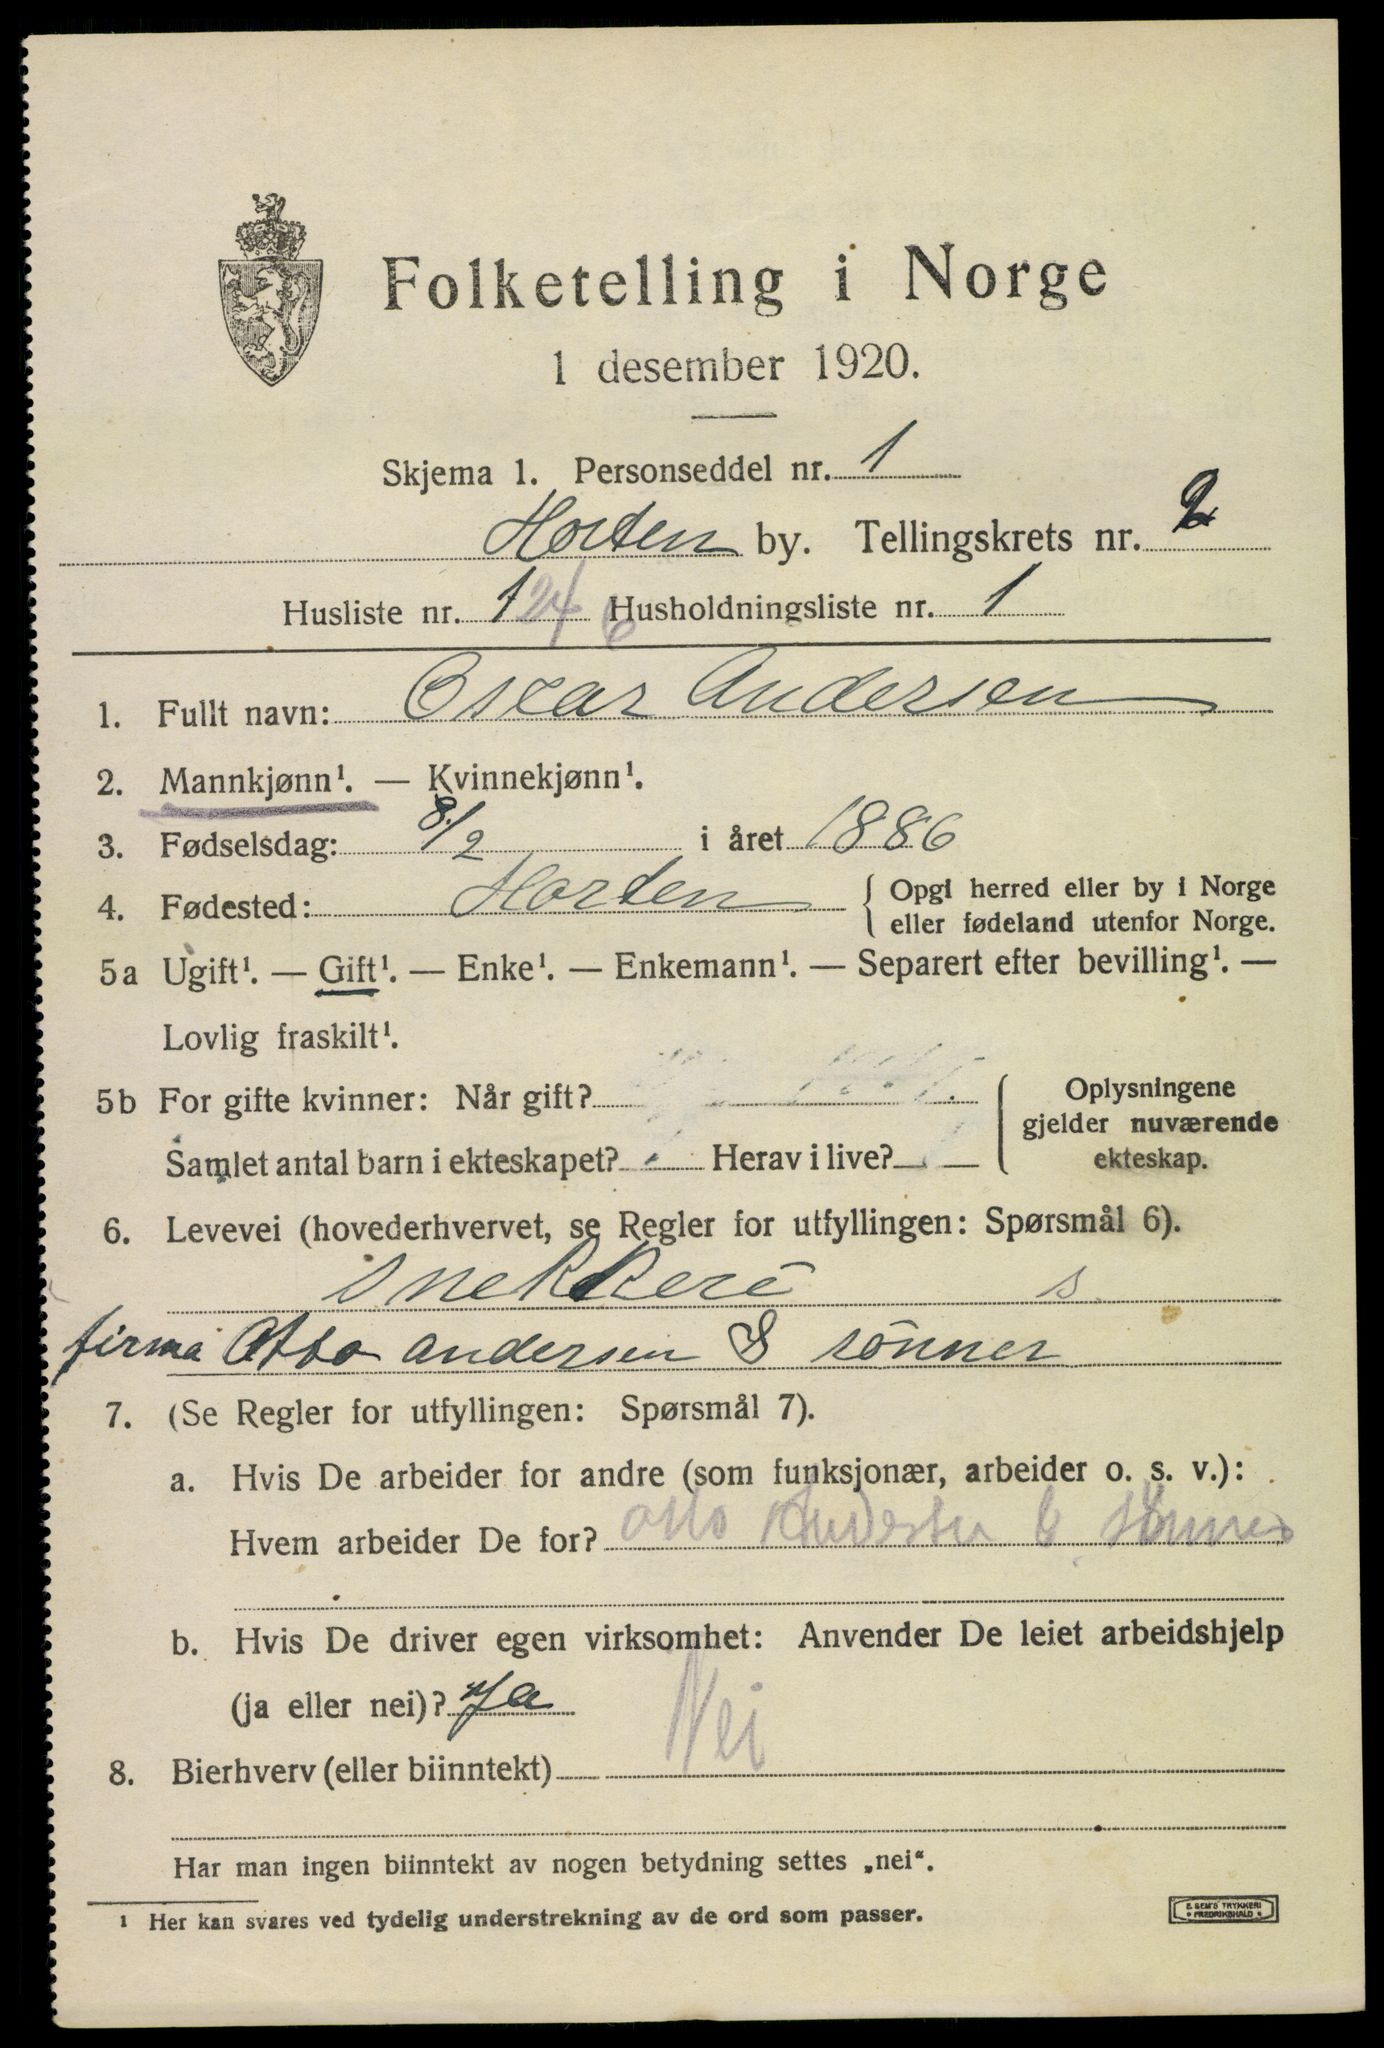 Folketelling i Norge
1 desember 1920.
Skjema 1. Personseddel nr. 1
Horten by. Tellingskrets nr. 2
Husliste nr. 1 Husholdningsliste nr. 1
1. Fullt navn: Oscar Andersen
2. Mannkjønn¹. — Kvinnekjønn¹.
3. Fødselsdag: 8/2 i året 1886
4. Fødested: Horten { Opgi herred eller by i Norge
eller fødeland utenfor Norge.
5a Ugift¹. — Gift¹. — Enke¹. — Enkemann¹. — Separert efter bevilling¹. —
Lovlig fraskilt¹.
5b For gifte kvinner: Når gift? { Oplysningene
gjelder nuværende
Samlet antal barn i ekteskapet? Herav i live? ekteskap.
6. Levevei (hovederhvervet, se Regler for utfyllingen: Spørsmål 6).
snekkeri s
firma Otto andersen & sönner
7. (Se Regler for utfyllingen: Spørsmål 7).
a. Hvis De arbeider for andre (som funksjonær, arbeider o. s. v.):
Hvem arbeider De for? Otto Andersen & Sønner
b. Hvis De driver egen virksomhet: Anvender De leiet arbeidshjelp
(ja eller nei)? Ja
8. Bierhverv (eller biinntekt) Nei
Har man ingen biinntekt av nogen betydning settes „nei“.
¹ Her kan svares ved tydelig understrekning av de ord som passer.
E. SEM'S TRYKKERI
• FREDRIKSHALD •